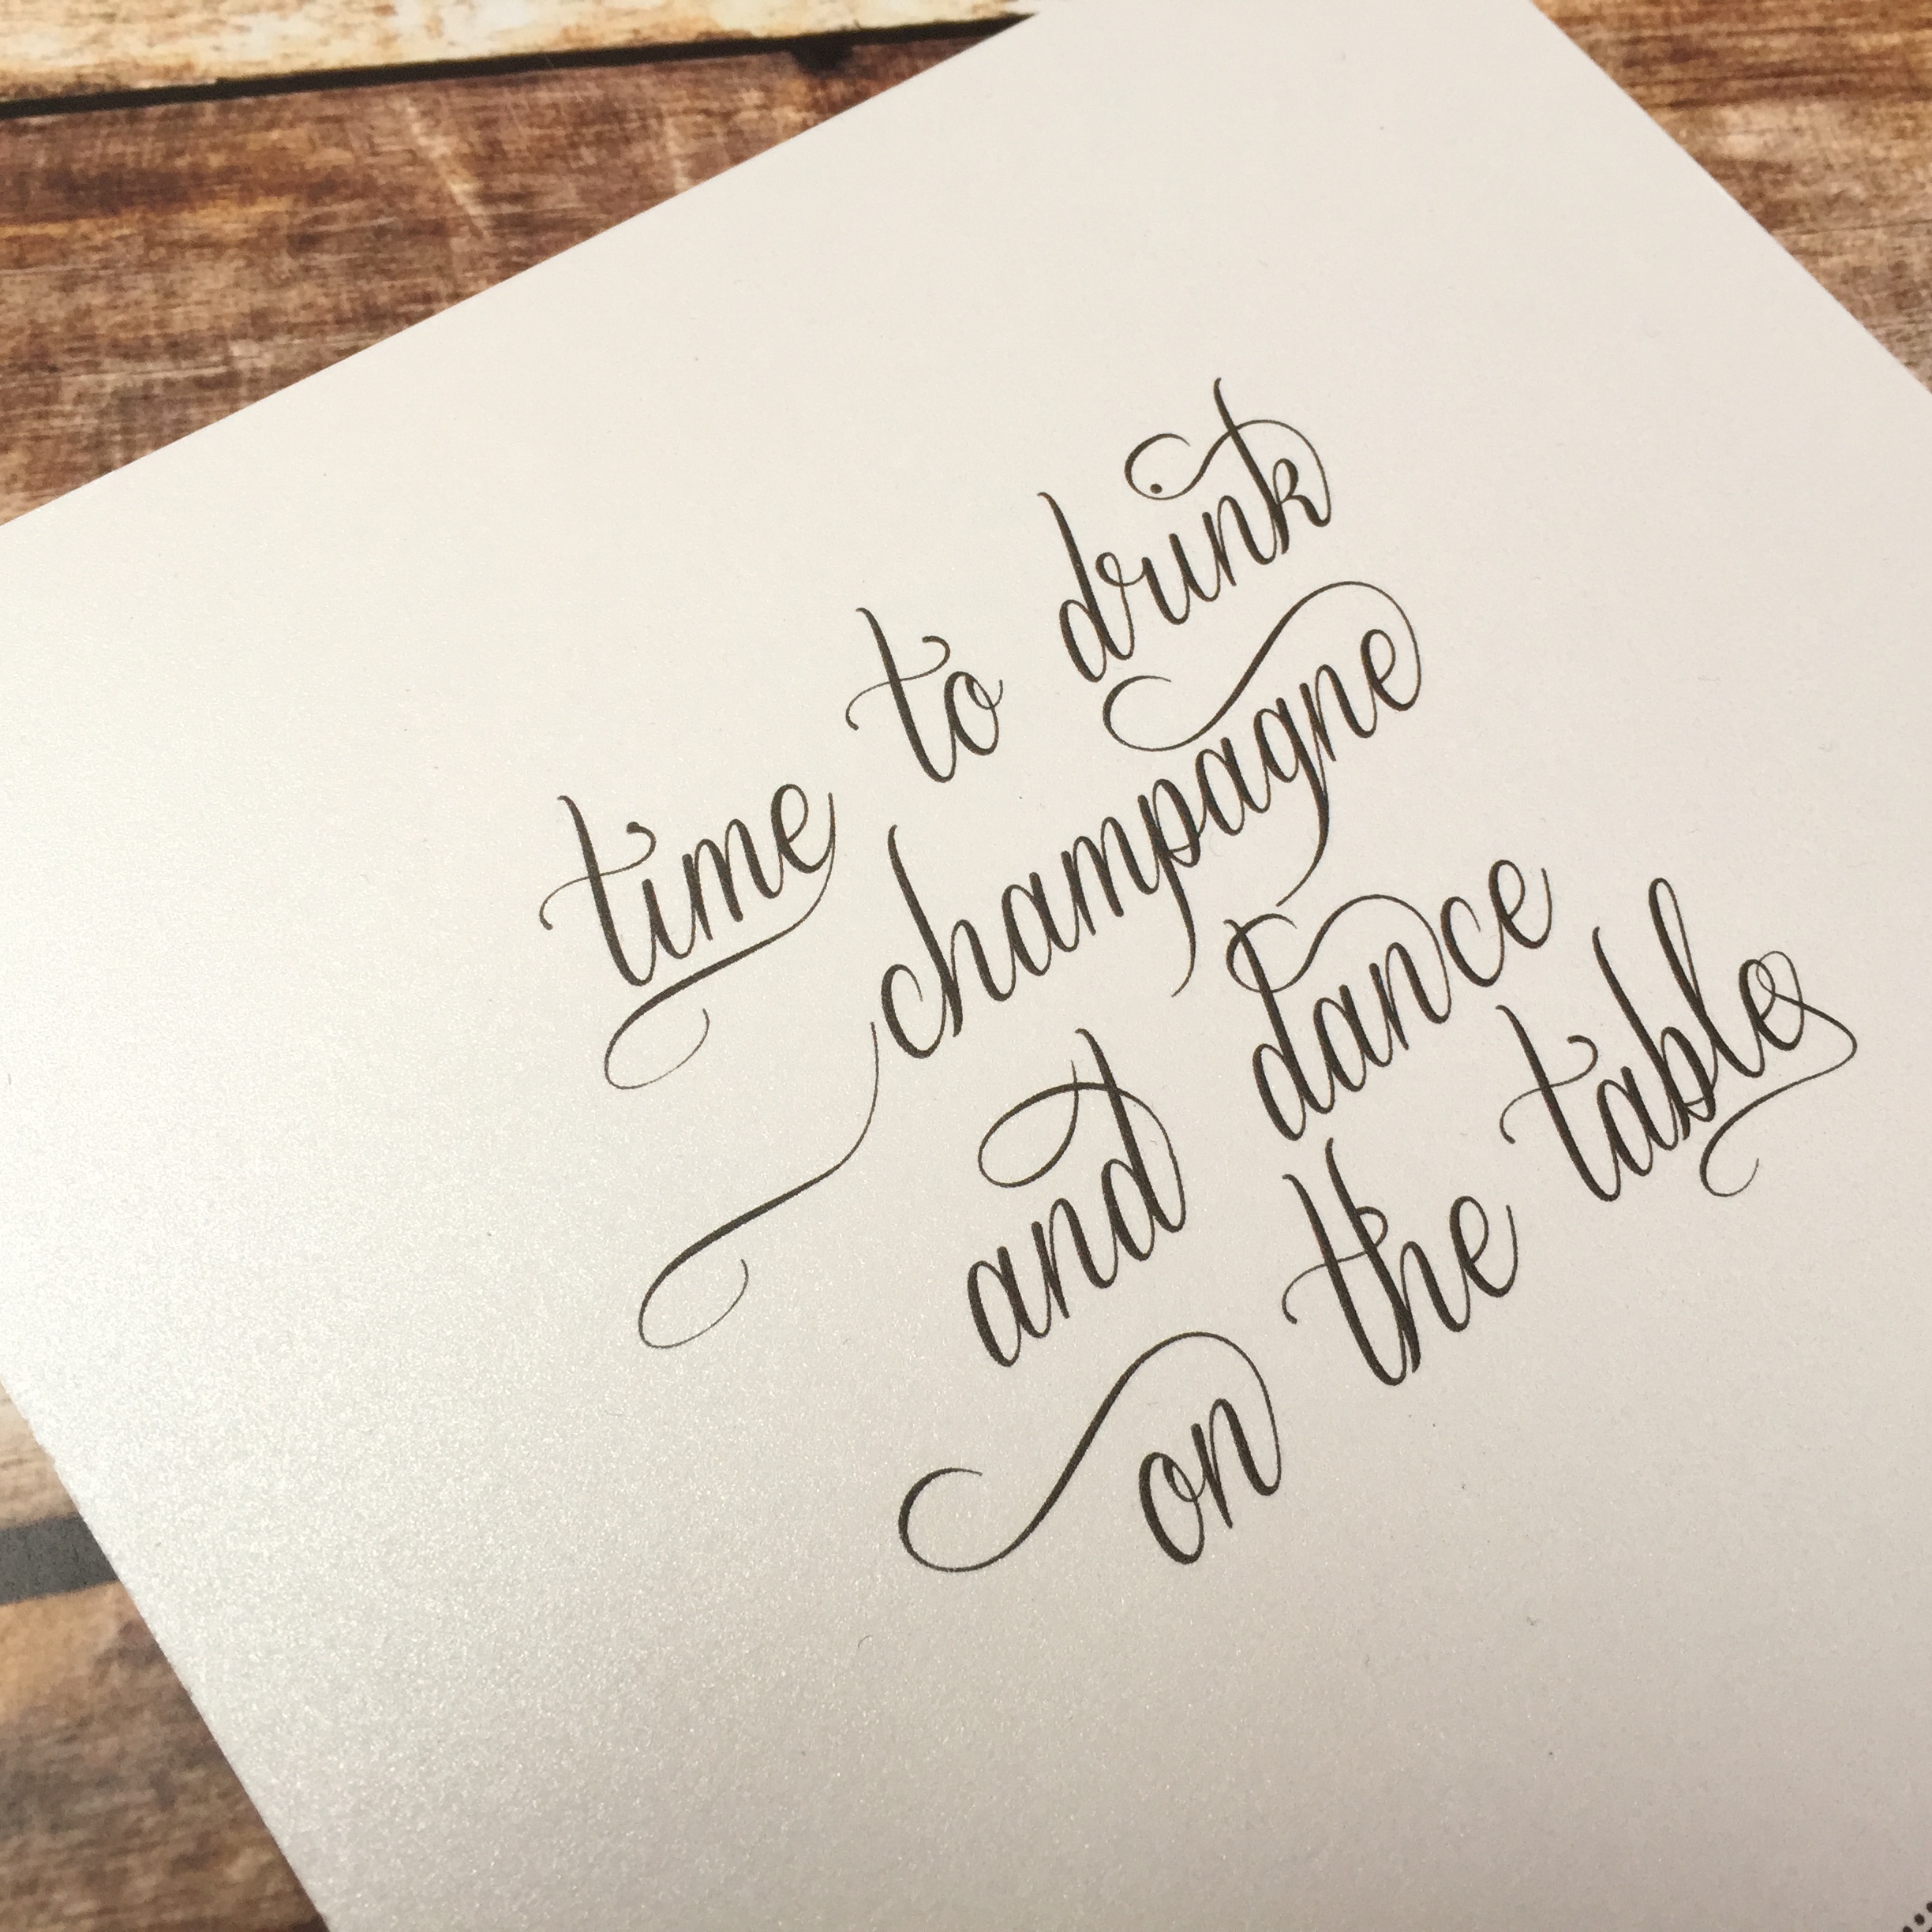 time to drink
champagne
and dance
on the tables